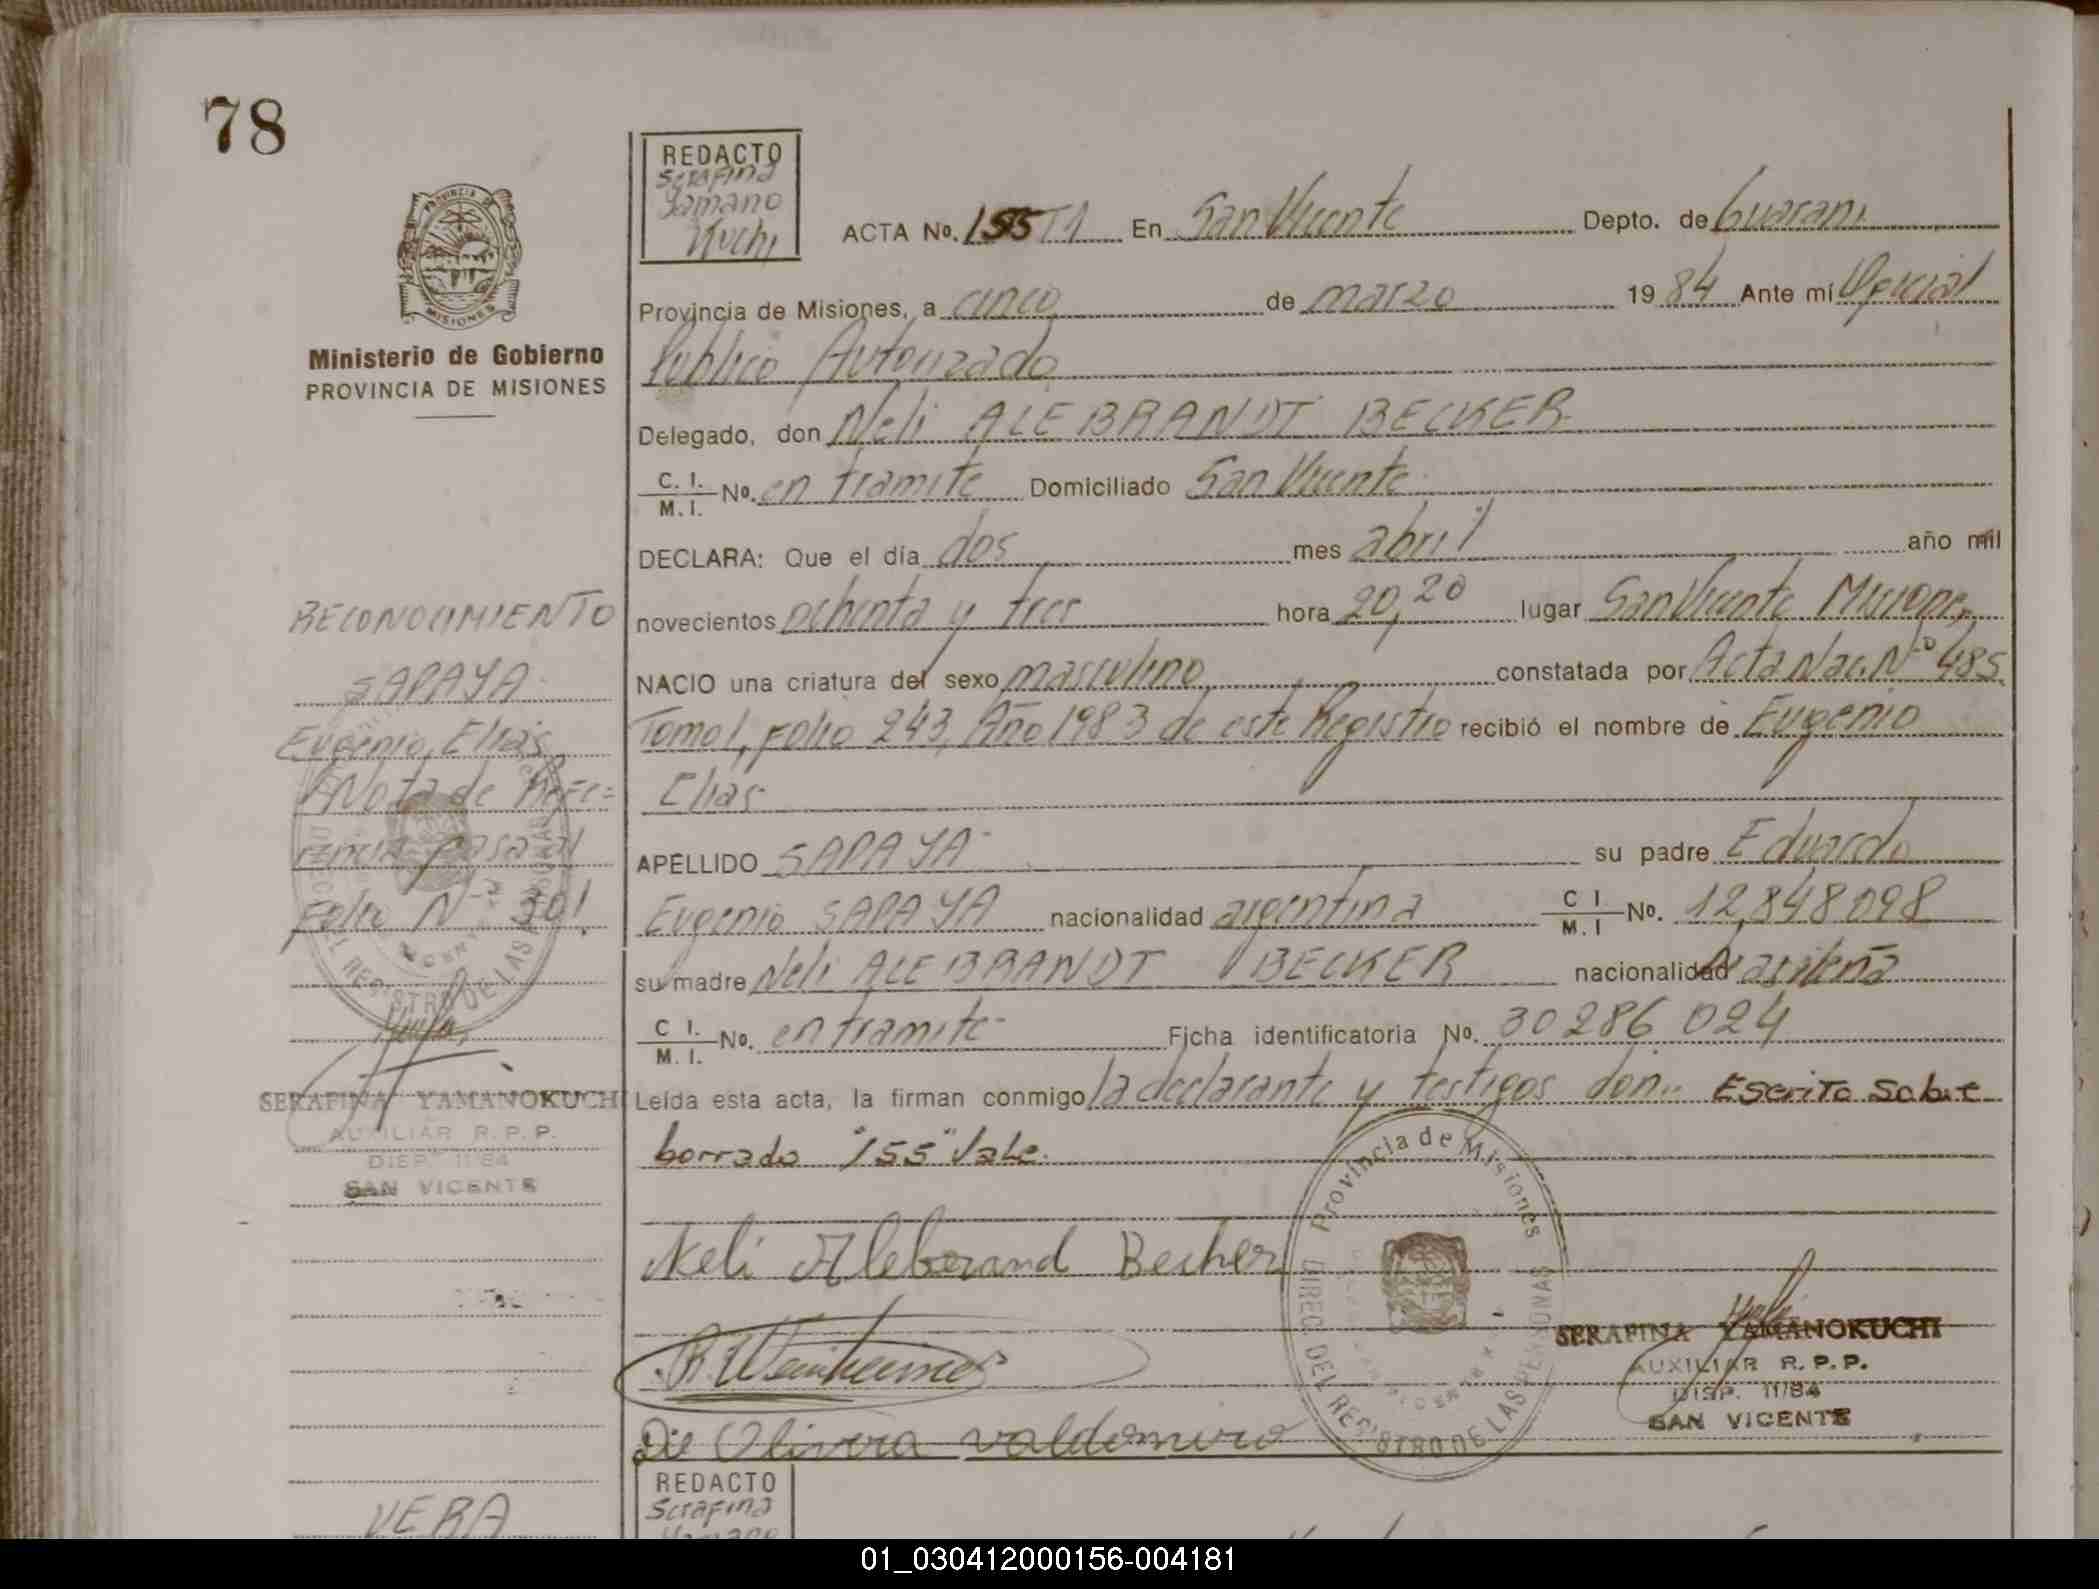 78
PROVINCIA DE
MISIONES
Ministerio de Gobierno
PROVINCIA DE MISIONES
RECONOCIMIENTO
SAPAYA
Eugenio, Elias
Nota de Refe=
rencia pasa al
Folio Nº 301
SERAFINA YAMANOKUCHI
AUXILIAR R.P.P.
DISP. 11/84
SAN VICENTE
VERA
REDACTO
Serafina
Yamano
Kuchi
ACTA No. 155 T1 En San Vicente Depto. de Guarani
Provincia de Misiones, a cinco de marzo 1984 Ante mí Oficial
Publico Autorizado
Delegado, don Neli ALEBRANDT BECKER
C. I. / M. I. No. en tramite Domiciliado San Vicente
DECLARA: Que el día dos mes abril año mil
novecientos ochenta y tres hora 20,20 lugar San Vicente Misiones
NACIO una criatura del sexo masculino constatada por Acta Nac. Nº 485
Tomo I, Folio 243, Año 1983 de este Registro recibió el nombre de Eugenio
Elias
APELLIDO SAPAYA su padre Eduardo
Eugenio SAPAYA nacionalidad argentina C I / M. I No. 12,848098
su madre Neli ALEBRANDT BECKER nacionalidad brasileña
C I. / M. I. No. en tramite Ficha identificatoria No. 30286024
Leída esta acta, la firman conmigo la declarante y testigos don.. Escrito sobre
borrado "155" Vale.
Neli Aleberand Becker
De Olivera valdomiro
Provincia de Misiones
DIREC. DEL REGISTRO DE LAS PERSONAS
SERAFINA YAMANOKUCHI
AUXILIAR R.P.P.
DISP. 11/84
SAN VICENTE
REDACTO
Serafina
Yamano
01_030412000156-004181